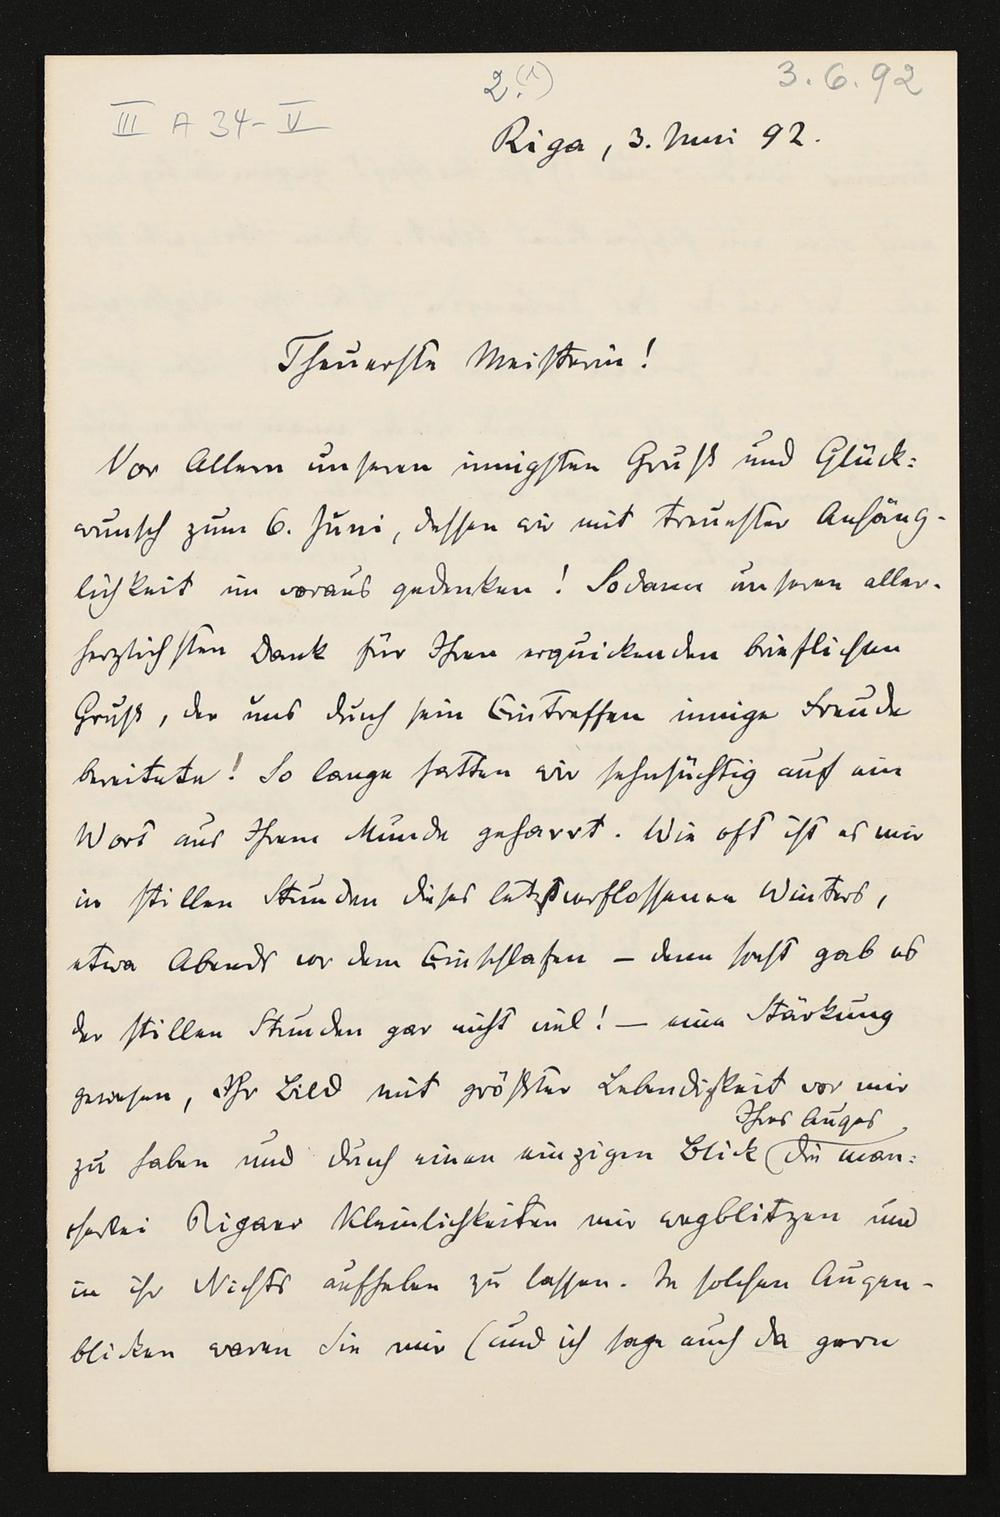 2.(1)
3.6.92
III A 34-V
Riga, 3. Juni 92.
Theuerste Meisterin!
Vor Allem unseren innigsten Gruß und Glück-
wunsch zum 6. Juni, dessen wir mit treuester Anhäng-
lichkeit im voraus gedenken! Sodann unseren aller-
herzlichsten Dank für Ihren erquickenden brieflichen
Gruß, der uns durch sein Eintreffen innige Freude
bereitete! So lange hatten wir sehnsüchtig auf ein
Wort aus Ihrem Munde geharrt. Wie oft ist es mir
in stillen Stunden dieses letztverflossenen Winters,
etwa Abends vor dem Einschlafen – denn sonst gab es
der stillen Stunden gar nicht viel! – eine Stärkung
gewesen, Ihr Bild mit größter Lebendigkeit vor mir
Ihres Auges
zu haben und durch einen einzigen Blick die man-
cherlei Rigaer Kleinlichkeiten mir wegblitzen und
in ihr Nichts aufheben zu lassen. In solchen Augen-
blicken waren Sie mir (und ich sage auch da gern